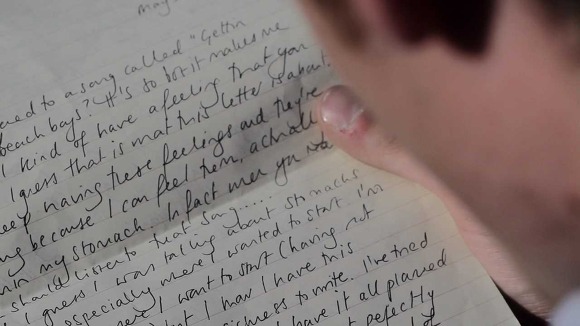 ned to a song called "Gettin
beach boys? It's so but it makes me
I kind of have a feeling that you
I guess that is what this letter is about.
keep having these feelings and they're
because I can feel them, actuall
in my stomach. In fact when you
should listen to that song.....
guess I was talking about stomachs
especially where I wanted to start. I'm
where I want to start (having not
but I man I have this
to write. I've tried
have it all planned
t perfectly